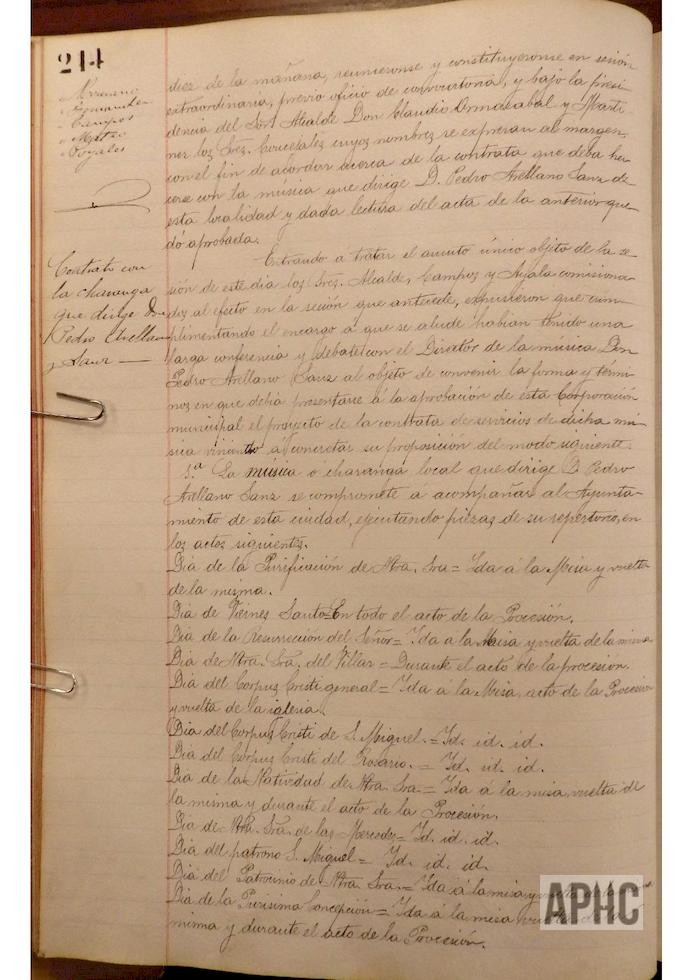 214
Moreno
Fernandez
Campos
Mateo
Royales
diez de la mañana, reunieronse y constituyeronse en sesión
extraordinaria, previo oficio de convocatoria, y bajo la presi-
dencia del Sor. Alcalde Don Claudio Ormazabal y Marti-
nez los Sres. Concejales cuyos nombres se expresan al margen,
con el fin de acordar acerca de la contrata que deba ha-
cerse con la música que dirige D. Pedro Arellano Sanz de
esta localidad y dada lectura del acta de la anterior que-
dó aprobada.
Contrato con
la charanga
que dirige Don
Pedro Arellano
y Sanz
Entrando a tratar el asunto único objeto de la se-
sión de este dia los Sres. Alcalde, Campos y Ayala comisiona-
dos al efecto en la seción que antecede, expusieron que cum-
plimentando el encargo a que se alude habian tenido una
larga conferencia y debate con el Director de la música Don
Pedro Arellano Sanz al objeto de convenir la forma y termi-
nos en que debia presentarse á la aprobación de esta Corporación
municipal el proyecto de la contrata de servicios de dicha mú-
sica viniendo a concretar su proposición del modo siguiente.
1.ª La música ó charanga local que dirige D. Pedro
Arellano Sanz se compromete á acompañar al Ayunta-
miento de esta ciudad, ejecutando piezas de su repertorio, en
los actos siguientes.
Dia de la Purificación de Ntra. Sra = Ida á la Misa y vuelta
de la misma.
Dia de Viernes Santo = En todo el acto de la Procesión.
Dia de la Resurrección del Señor = Ida a la Misa y vuelta de la misma
Dia de Ntra. Sra. del Villar = Durante el acto de la procesión.
Dia del Corpus Cristi general = Ida á la Misa, acto de la Procesión
y vuelta de la iglesia.
Dia del Corpus Cristi de S. Miguel. = Id. id. id.
Dia del Corpus Cristi del Rosario. = Id. id. id.
Dia de la Natividad de Ntra Sra = Ida á la misa, vuelta de
la misma y durante el acto de la Procesión.
Dia de Ntra. Sra. de las Mercedes = Id. id. id.
Dia del patrono S. Miguel = Id. id. id.
Dia del Patrocinio de Ntra Sra. = Ida á la misa y vuelta de la
Dia de la Purisima Concepción = Ida á la misa vuelta de la
misma y durante el acto de la Procesión.
APHC